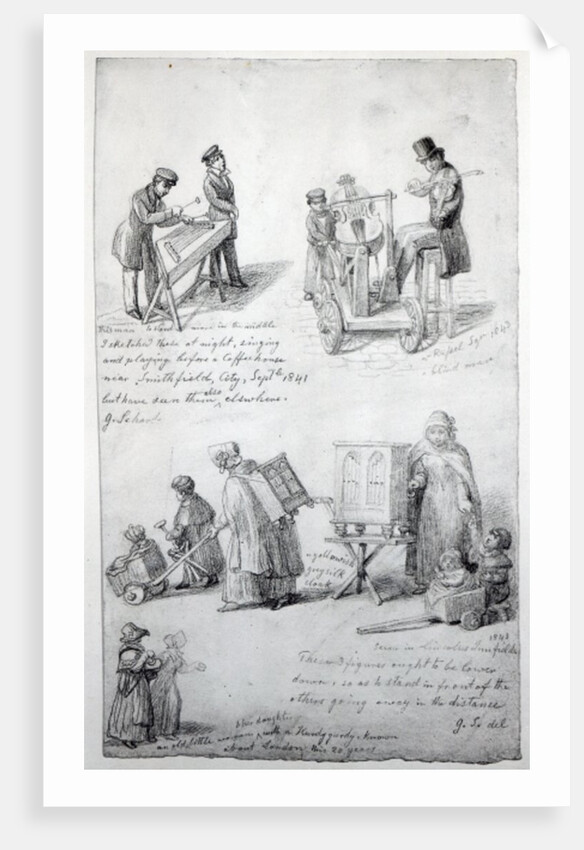 This man to stand more in the middle
I sketched these at night, singing
and playing before a Coffee house
near Smithfield, City, Septb 1841
but have seen them also elsewhere.
G. Scharf.
Sqr 1843
blind man
a yellowish
grey silk
cloak
1843
seen in Lincolns Innfields
These 3 figures ought to be lower
down, so as to stand in front of the
others going away in the distance
G. S. del
& her daughter
an old little woman, with a Hurdy gurdy, known
about London this 20 years